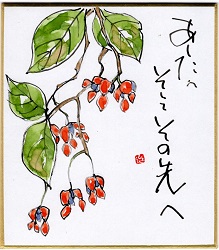 あしたへ
そしてその先へ